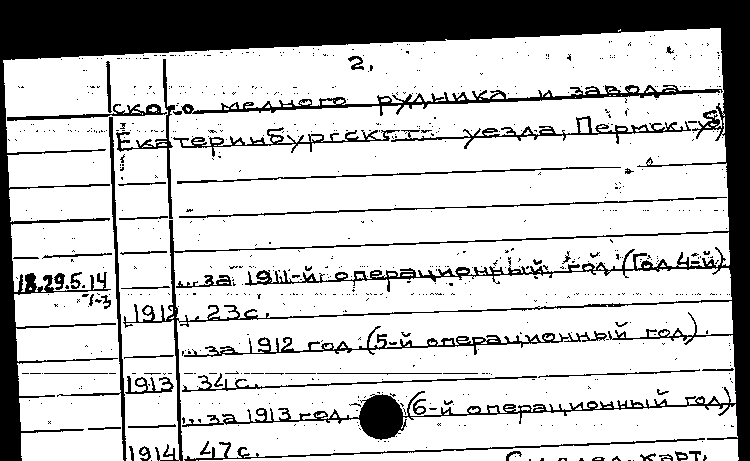 2.
ского медного рудника и завода
Екатеринбургск. уезда, Пермск.губ
18.29.5.14
1-3
... за 1911-й операционный год. (Год 4-й)
[1912]. 23с.
... за 1912 год. (5-й операционный год).
1913. 34с.
... за 1913 год. (6-й операционный год)
1914. 47с.
См.след.карт.